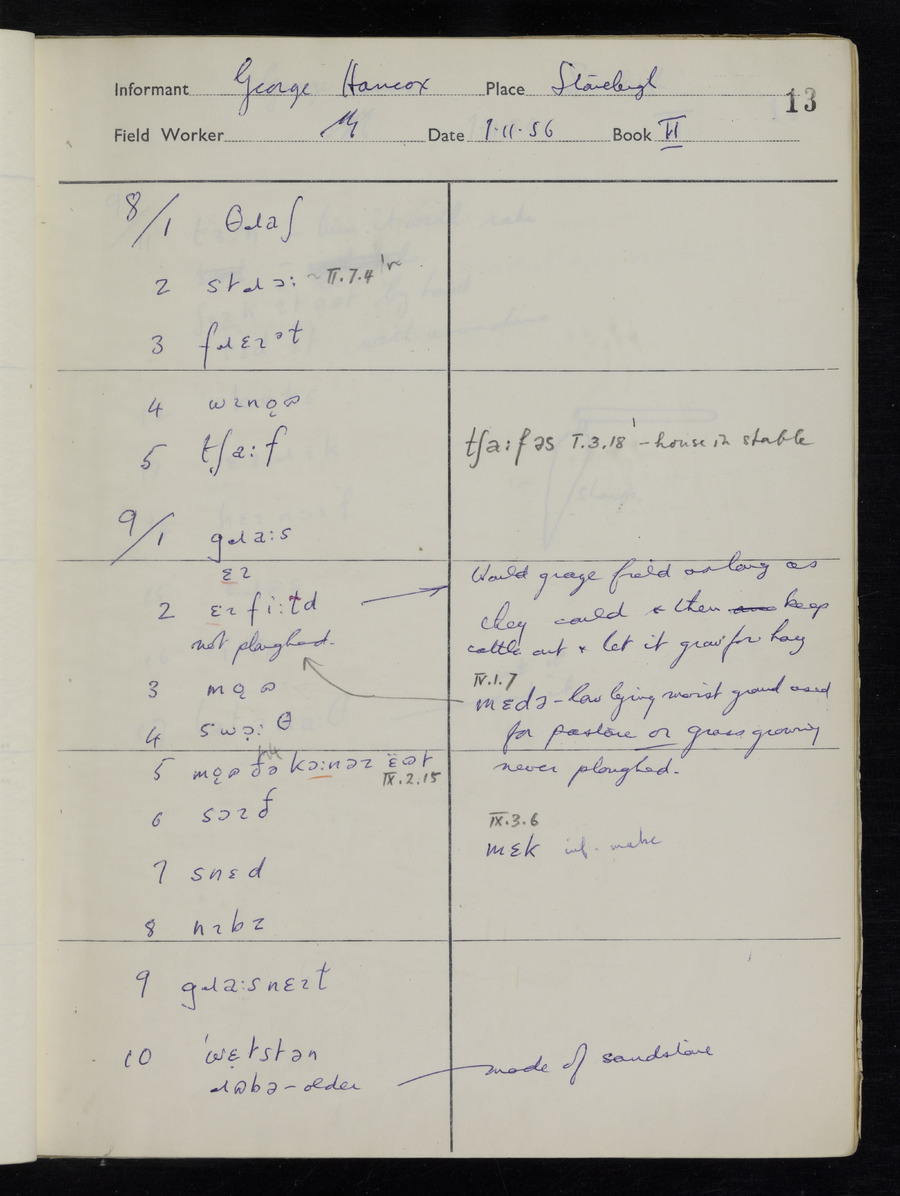 Informant George Hancox Place Stoneleigh
13
Field Worker Date 7.11.56 Book II
8/1 θɹaʃ
2 stɹɔ: ~ II.7.4
3 fɹɛɪət
4
5 tʃa:f
tʃa:fəs I.3.18 - house in stable
9/1 gɹa:s
ɛɪ
2 ɛɪ fi:ɫd
not ploughed.
Would graze field as long as
they could & then keep
cattle out & let it grow for hay
3
IV.1.7
mɛdə - low lying moist ground used
4
for pasture or grass growing
5
IX.2.15
never ploughed.
6
IX.3.6
mɛk inf. make
7 snɛd
8 nɪbz
9 gɹa:snɛɪt
10
- older
made of sandstone